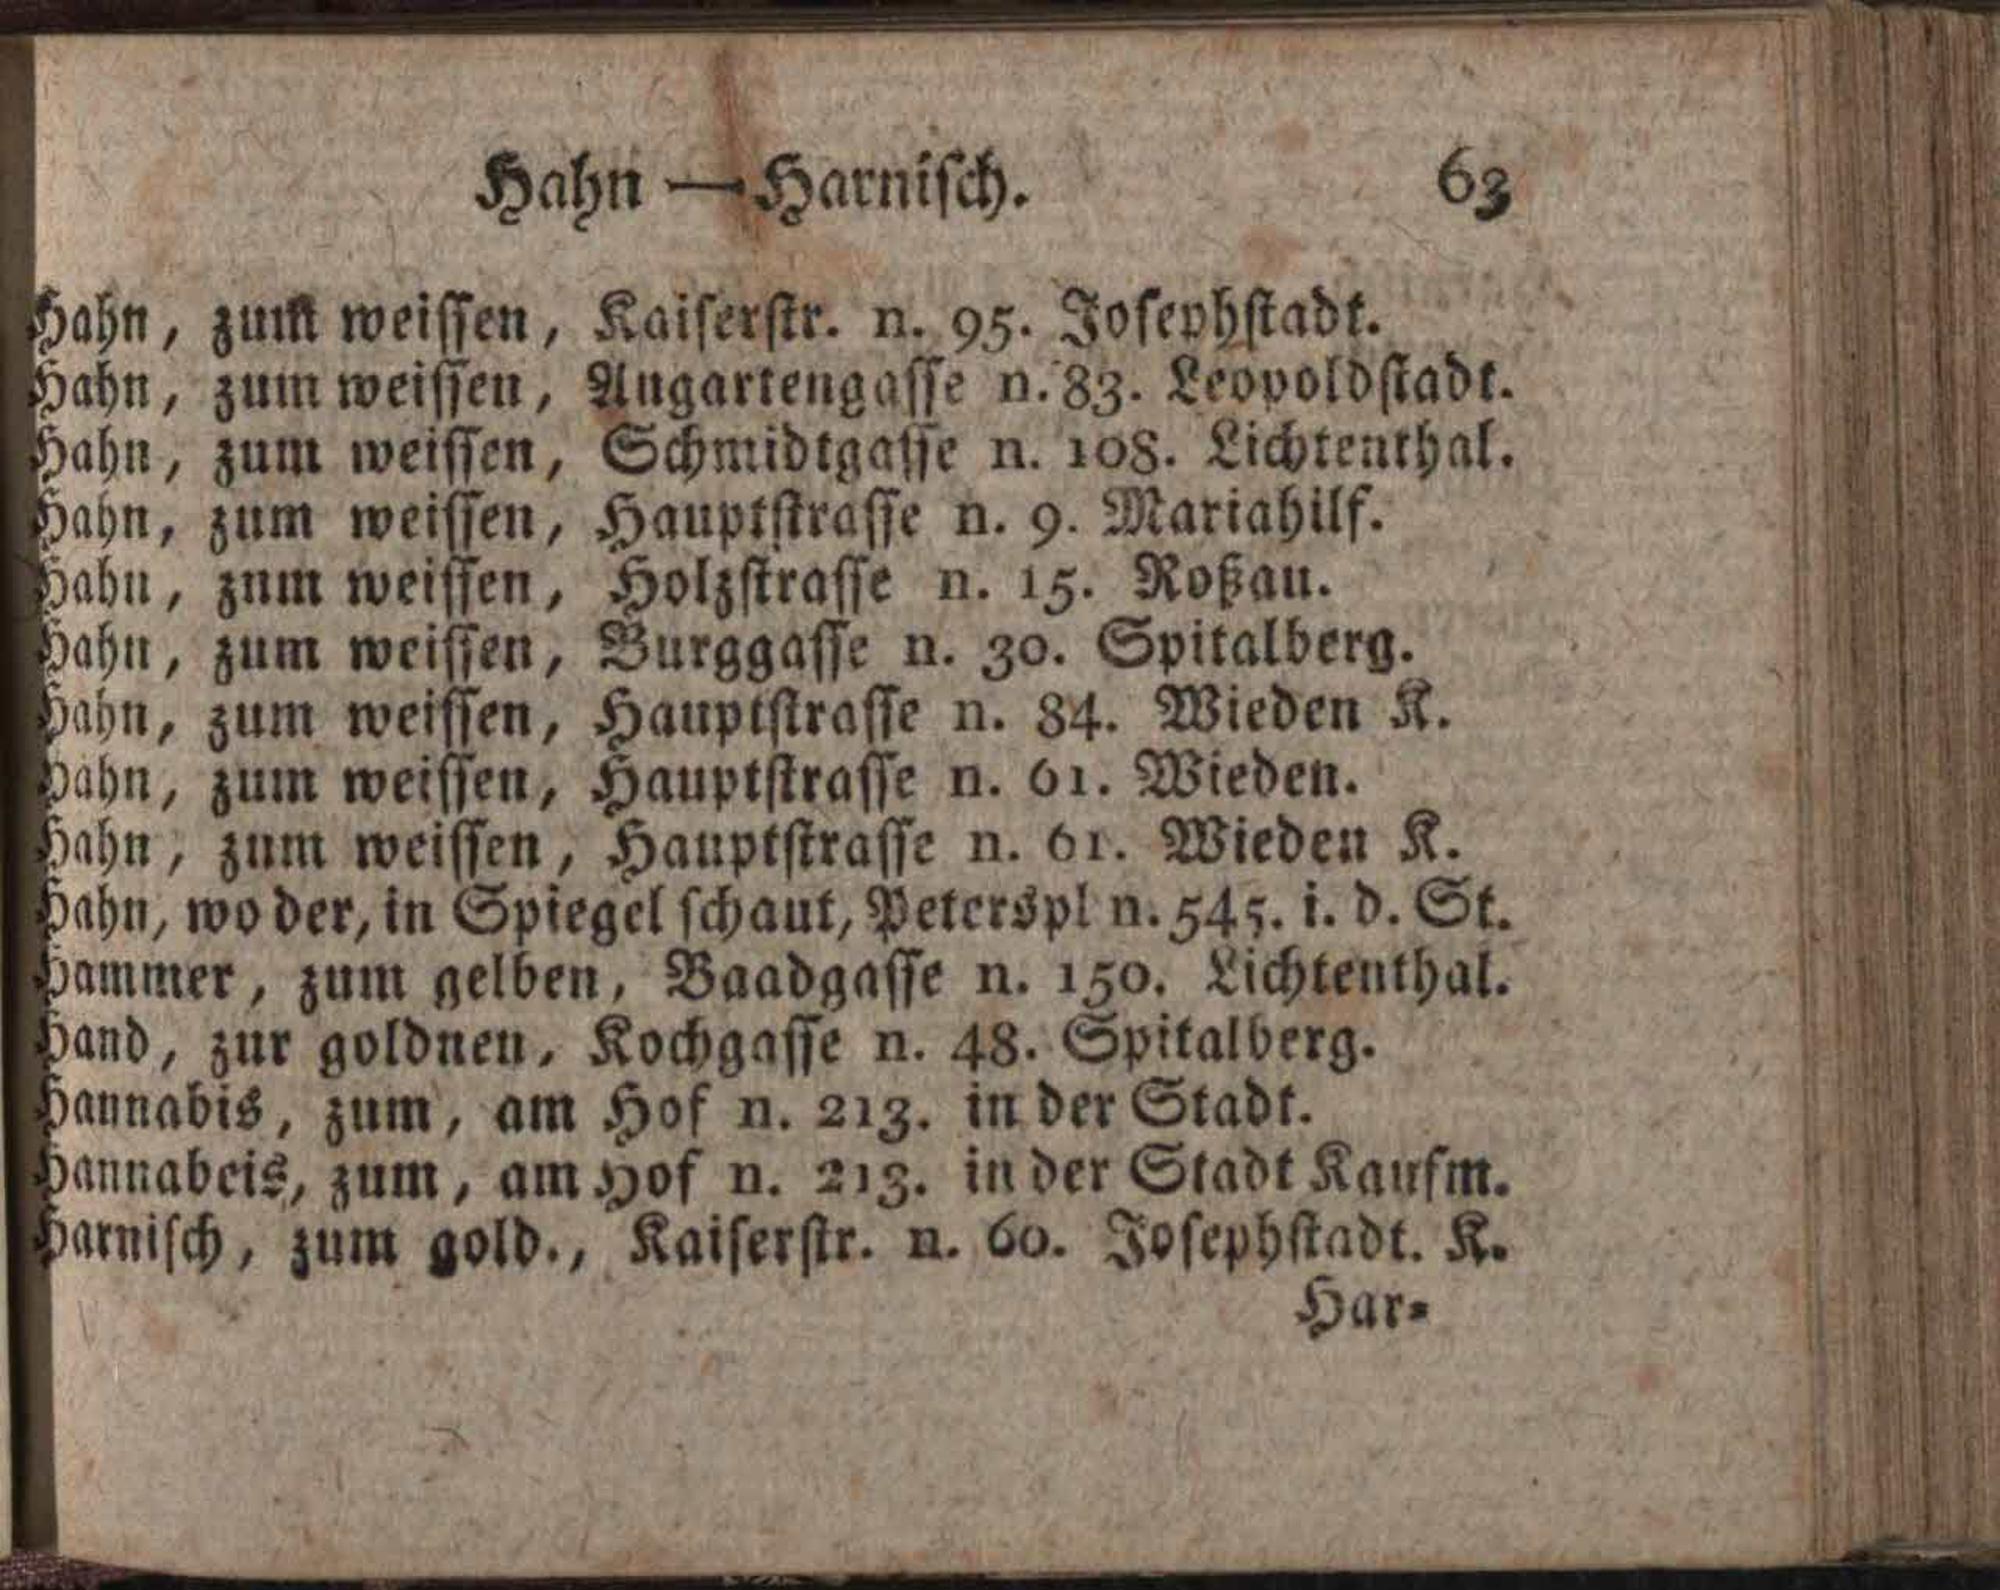 Hahn — Harnisch. 63
Hahn, zum weissen, Kaiserstr. n. 95. Josephstadt.
Hahn, zum weissen, Augartengasse n. 83. Leopoldstadt.
Hahn, zum weissen, Schmidtgasse n. 108. Lichtenthal.
Hahn, zum weissen, Hauptstrasse n. 9. Mariahilf.
Hahn, znm weissen, Holzstrasse n. 15. Roßau.
Hahn, zum weissen, Burggasse n. 30. Spitalberg.
Hahn, zum weissen, Hauptstrasse n. 84. Wieden K.
Hahn, zum weissen, Hauptstrasse n. 61. Wieden.
Hahn, zum weissen, Hauptstrasse n. 61. Wieden K.
Hahn, wo der, in Spiegel schaut, Peterspl n. 545. i. d. St.
Hammer, zum gelben, Baadgasse n. 150. Lichtenthal.
Hand, zur goldnen, Kochgasse n. 48. Spitalberg.
Hannabis, zum, am Hof n. 213. in der Stadt.
Hannabeis, zum, am Hof n. 213. in der Stadt Kaufm.
Harnisch, zum gold., Kaiserstr. n. 60. Josephstadt. K.
Har=